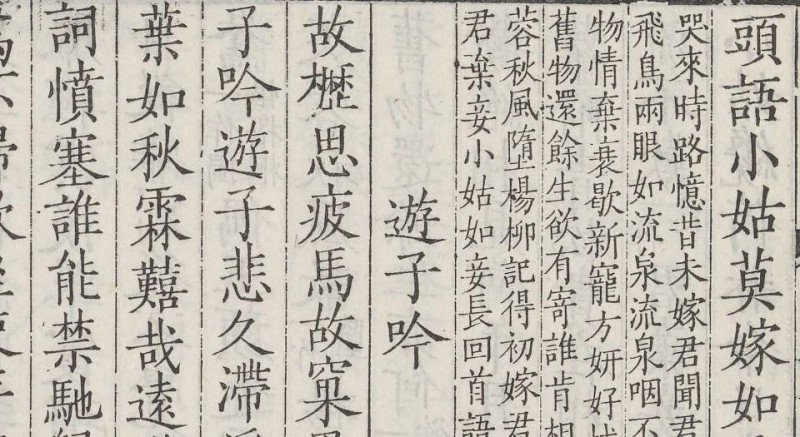 頭語小姑莫嫁如
哭來時路憶昔未嫁君聞君
飛鳥兩眼如流泉流泉咽不
物情棄衰歇新寵方妍好
舊物還餘生欲有寄誰肯相
蓉秋風墮楊柳記得初嫁君
君棄妾小姑如妾長回首語
遊子吟
故櫪思疲馬故窠思
子吟遊子悲久滯
葉如秋霖囏哉遠
詞憤塞誰能禁馳
歸